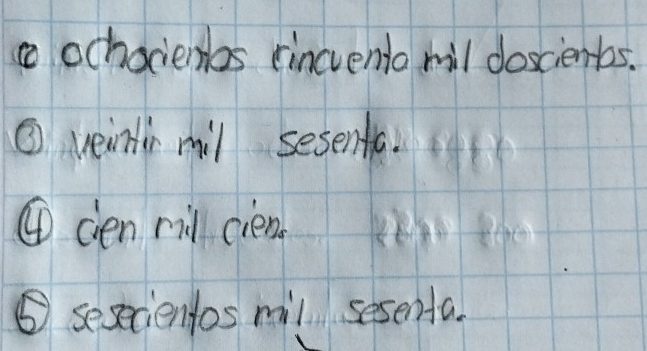 ② ochocientos cincuenta mil doscientos.
③ veintin mil sesenta.
④ cien mil cien.
⑤ sesecientos mil sesenta.